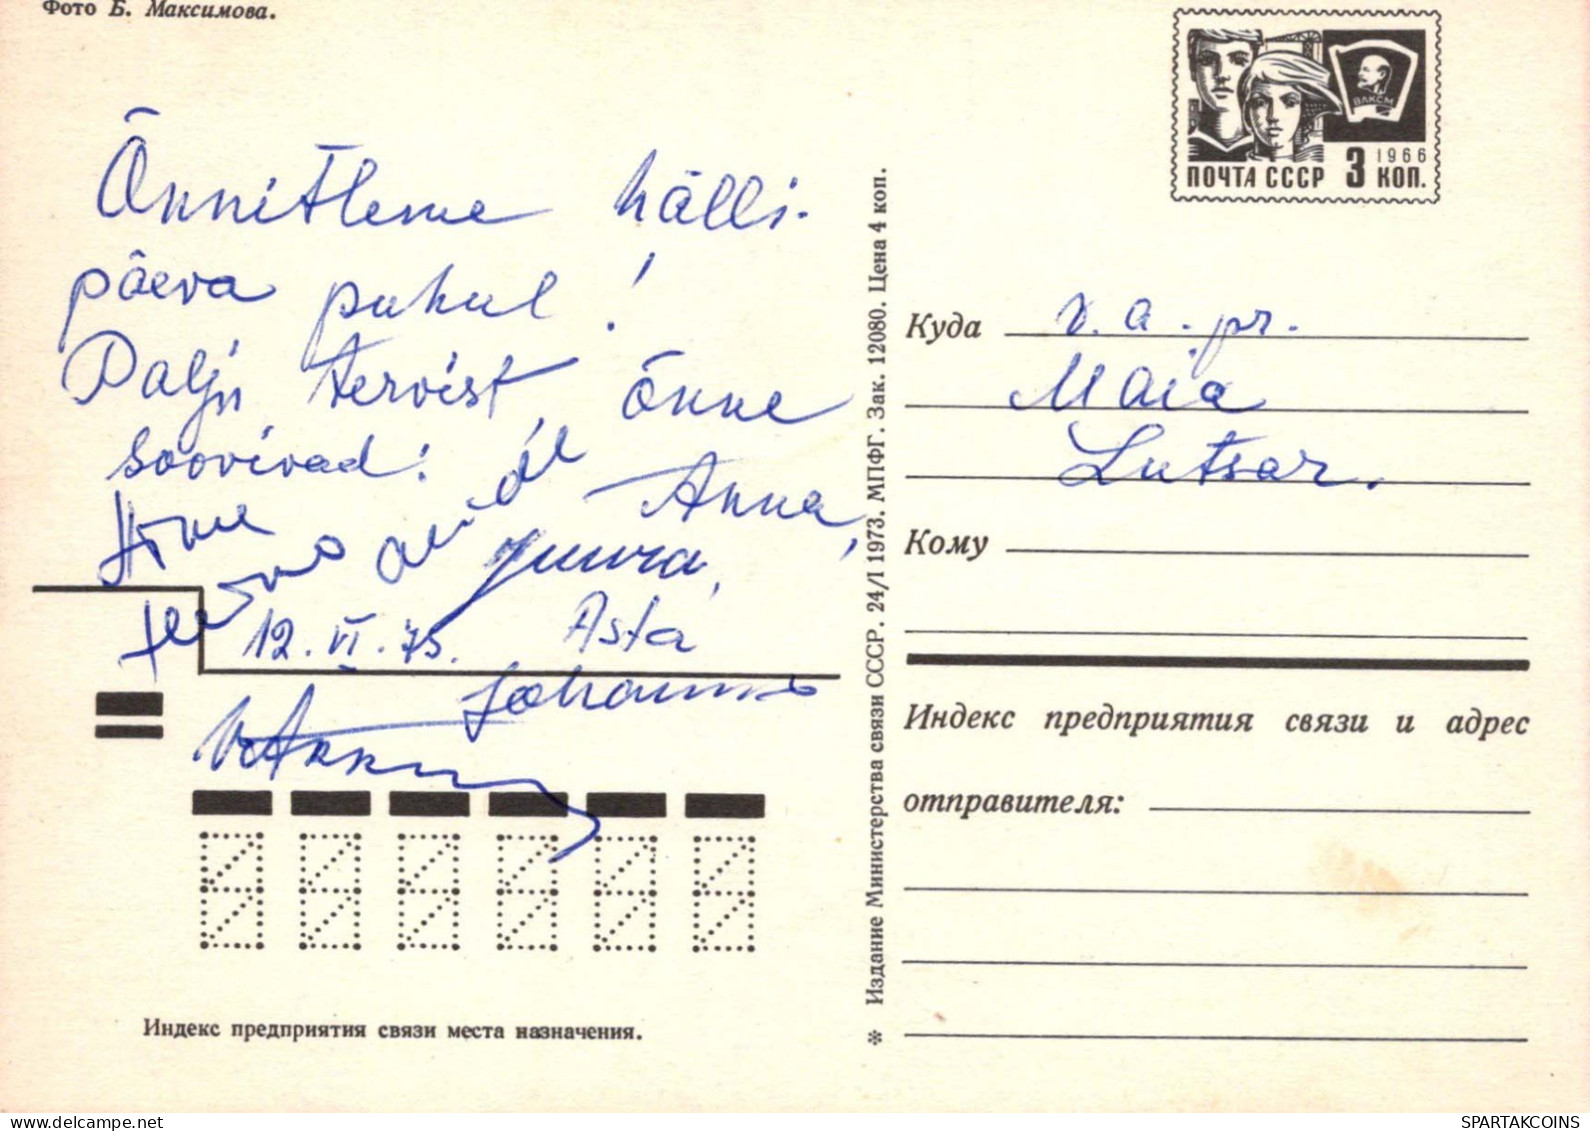 Фото Б. Максимова.
Õnnitleme hälli-
päeva puhul!
Palju tervist, õnne
soovivad:
Anna,
Juura,
12.VI.75.
Asta
Johannes
ВЛКСМ
1966
ПОЧТА СССР 3 КОП.
Издание Министерства связи СССР. 24/I 1973. МПФГ. Зак. 12080. Цена 4 коп.
Куда v. a. pr.
Maia
Lutsar.
Кому
Индекс предприятия связи и адрес
отправителя:
Индекс предприятия связи места назначения.
SPARTAKCOINS